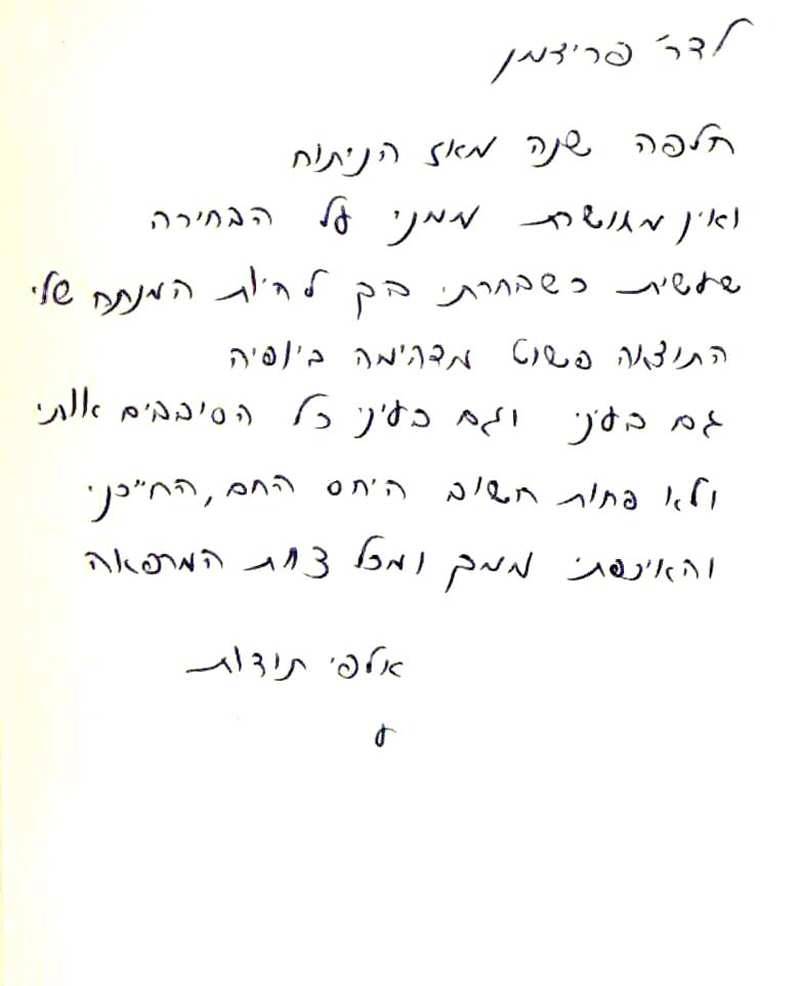 לדר׳ פרידמן
חלפה שנה מאז הניתוח
ואין מאושרת ממני על הבחירה
שעשית כשבחרתי בך להיות המנתח שלי
התוצאה פשוט מדהימה ביופיה
גם בעיני וגם בעיני כל הסובבים אותי
ולא פחות חשוב היחס החם, החייכני
והאינפתי ממך ומכל צוות המרפאה
אלפי תודות
ס